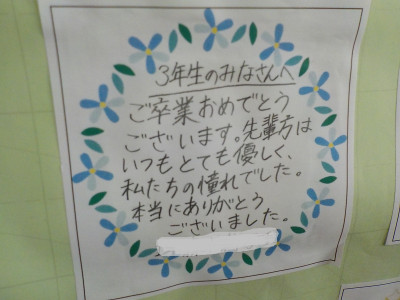 3年生のみなさんへ
ご卒業おめでとう
ございます。先輩方は
いつもとても優しく、
私たちの憧れでした。
本当にありがとう
ございました。